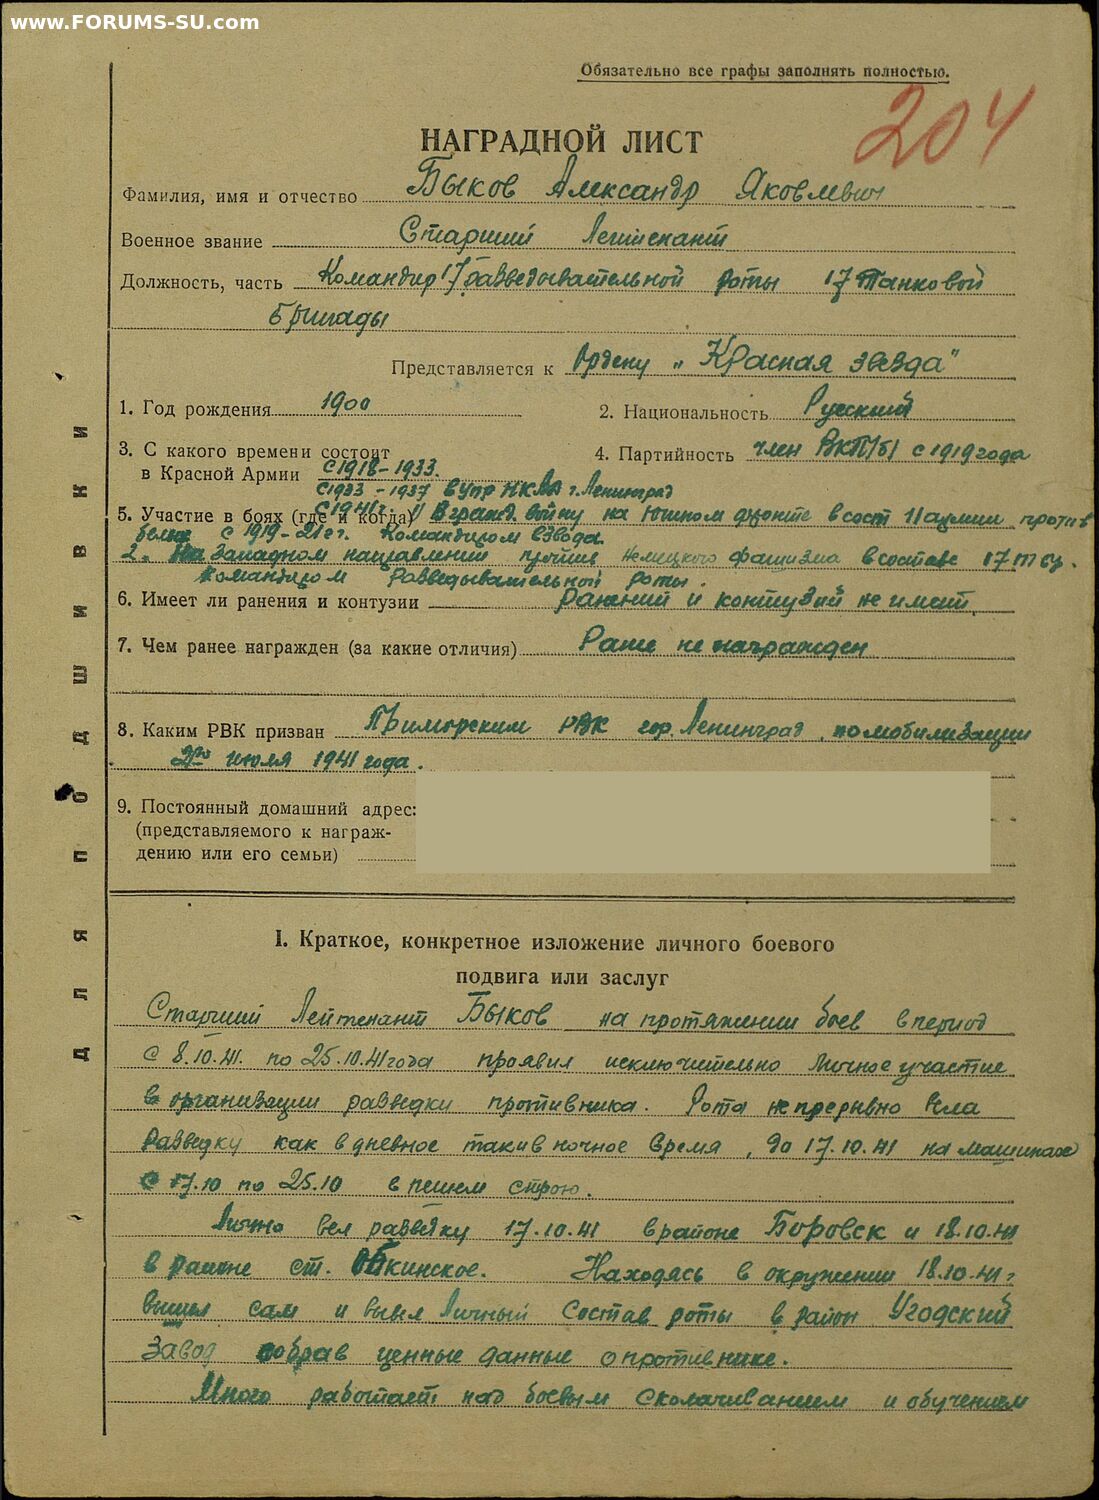 www.FORUMS-SU.com
Обязательно все графы заполнять полностью.
204
НАГРАДНОЙ ЛИСТ
Фамилия, имя и отчество Быков Александр Яковлевич
Военное звание Старший Лейтенант
Должность, часть Командир 17 разведывательной роты 17 Танковой
Бригады
Представляется к Ордену „Красная звезда"
1. Год рождения 1900
2. Национальность Русский
3. С какого времени состоит
в Красной Армии с 1918 - 1933.
4. Партийность член ВКП/б/ с 1919 года
с 1933 - 1937 в Упр НКВД г. Ленинград
с 1941 г.
5. Участие в боях (где и когда) 1/ В гражд. войну на Южном фронте в сост 11 армии против
белых с 1919 - 21 г. Командиром взвода.
2. На Западном направлении против немецкого фашизма в составе 17 т бр.
Командиром разведывательной роты.
6. Имеет ли ранения и контузии ранений и контузий не имеет
7. Чем ранее награжден (за какие отличия) Ранее не награжден
8. Каким РВК призван Приморским РВК гор. Ленинград, по мобилизации
2го июля 1941 года.
9. Постоянный домашний адрес:
(представляемого к награж-
дению или его семьи)
ДЛЯ ПОДШИВКИ
I. Краткое, конкретное изложение личного боевого
подвига или заслуг
Старший Лейтенант Быков на протяжении боев в период
с 8.10.41. по 25.10.41 года проявил исключительно личное участие
в организации разведки противника. Рота непрерывно вела
разведку как в дневное так и в ночное время, до 17.10.41 на машинах
с 17.10 по 25.10 в пешем строю.
Лично вел разведку 17.10.41 в районе Боровск и 18.10.41
в районе ст. Обнинское. Находясь в окружении 18.10.41 г
вышел сам и вывел личный состав роты в район Угодский
Завод собрав ценные данные о противнике.
Много работает над боевым сколачиванием и обучением